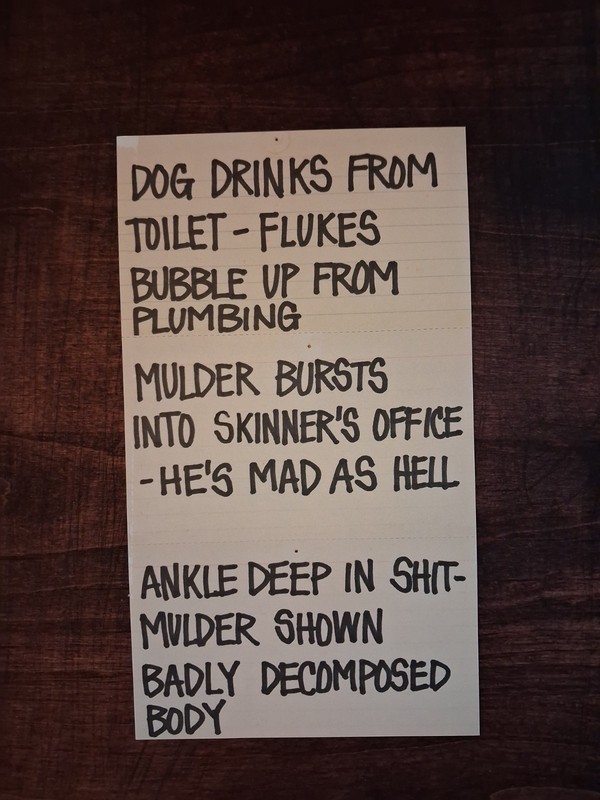 DOG DRINKS FROM
TOILET - FLUKES
BUBBLE UP FROM
PLUMBING
MULDER BURSTS
INTO SKINNER'S OFFICE
- HE'S MAD AS HELL
ANKLE DEEP IN SHIT-
MULDER SHOWN
BADLY DECOMPOSED
BODY